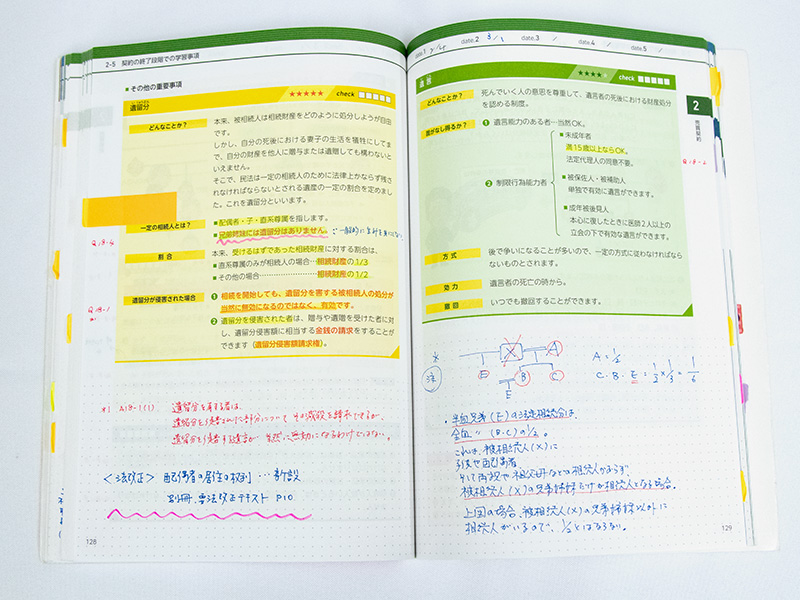 2-5 契約の終了段階での学習事項
■ その他の重要事項
遺留分
★★★★★ check
どんなことか？
本来、被相続人は相続財産をどのように処分しようが自由
です。
しかし、自分の死後における妻子の生活を犠牲にしてま
で、自分の財産を他人に贈与または遺贈しても構わないと
いえません。
そこで、民法は一定の相続人のために法律上かならず残さ
れなければならないとされる遺産の一定の割合を定めまし
た。これを遺留分といいます。
一定の相続人とは？
■ 配偶者・子・直系尊属を指します。
■ 兄弟姉妹には遺留分はありません。
Q18-4
割合
本来、受けるはずであった相続財産に対する割合は、
■ 直系尊属のみが相続人の場合…相続財産の1/3
■ その他の場合……………………相続財産の1/2
Q18-1
遺留分が侵害された場合
❶ 相続を開始しても、遺留分を害する被相続人の処分が
当然に無効になるのではなく、有効です。
❷ 遺留分を侵害された者は、贈与や遺贈を受けた者に対
し、遺留分侵害額に相当する金銭の請求をすることが
できます（遺留分侵害額請求権）。
*1 A18-1(1) 遺留分を有する者は、
遺留分を侵害された部分について その減殺を請求できるが、
遺留分を侵害する遺言が 当然に無効になるわけではない。
＜法改正＞ 配偶者の居住の権利 … 新設
別冊. 要法改正テキスト P10
128
date.1
date.2 3/1
date.3
date.4
date.5
遺言
★★★★☆ check
どんなことか？
死んでいく人の意思を尊重して、遺言者の死後における財産処分
を認める制度。
誰がなし得るか？
❶ 遺言能力のある者…当然OK。
❷ 制限行為能力者
■ 未成年者
満15歳以上ならOK。
法定代理人の同意不要。
■ 被保佐人・被補助人
単独で有効に遺言ができます。
■ 成年被後見人
本心に復したときに医師2人以上の
立会の下で有効な遺言ができます。
方式
後で争いになることが多いので、一定の方式に従わなければなら
ないものとされます。
効力
遺言者の死亡の時から。
撤回
いつでも撤回することができます。
2
売買契約
Q18-2
*
注
X
A
E
B
C
E
A = 1/2
C・B・E = 1/2 × 1/3 = 1/6
・半血兄弟(E)の法定相続分は、
全血 〃 (B・C)の1/2。
これは、被相続人(X)に
子供や配偶者
そして両親や祖父母などの相続人がおらず、
被相続人(X)の兄弟姉妹だけが相続人となる場合。
上図の場合、被相続人(X)の兄弟姉妹以外に
相続人がいるので、1/2とはならない。
129